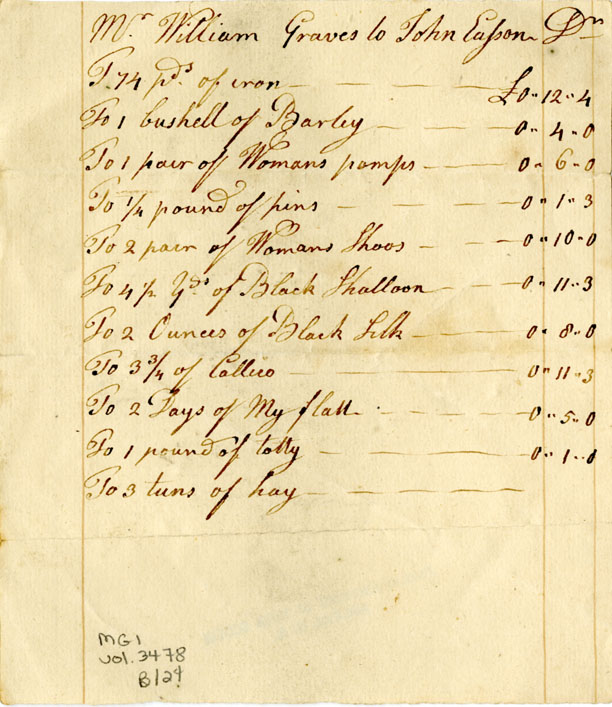 Mr William Graves to John Easson Dr
T 74 pds of iron £0 " 12 " 4
To 1 bushell of Barley 0 " 4 " 0
To 1 pair of Womans pamps 0 " 6 " 0
To 1/4 pound of pins 0 " 1 " 3
To 2 pair of Womans Shoos 0 " 10 " 0
To 4 1/2 Yds of Black Shalloon 0 " 11 " 3
To 2 Ounces of Black Silk 0 " 8 " 0
To 3 3/4 of Callico 0 " 11 " 3
To 2 Days of My flatt 0 " 5 " 0
To 1 pound of 0 " 1 " 0
To 3 tuns of hay
MG1
vol. 3478
B/24